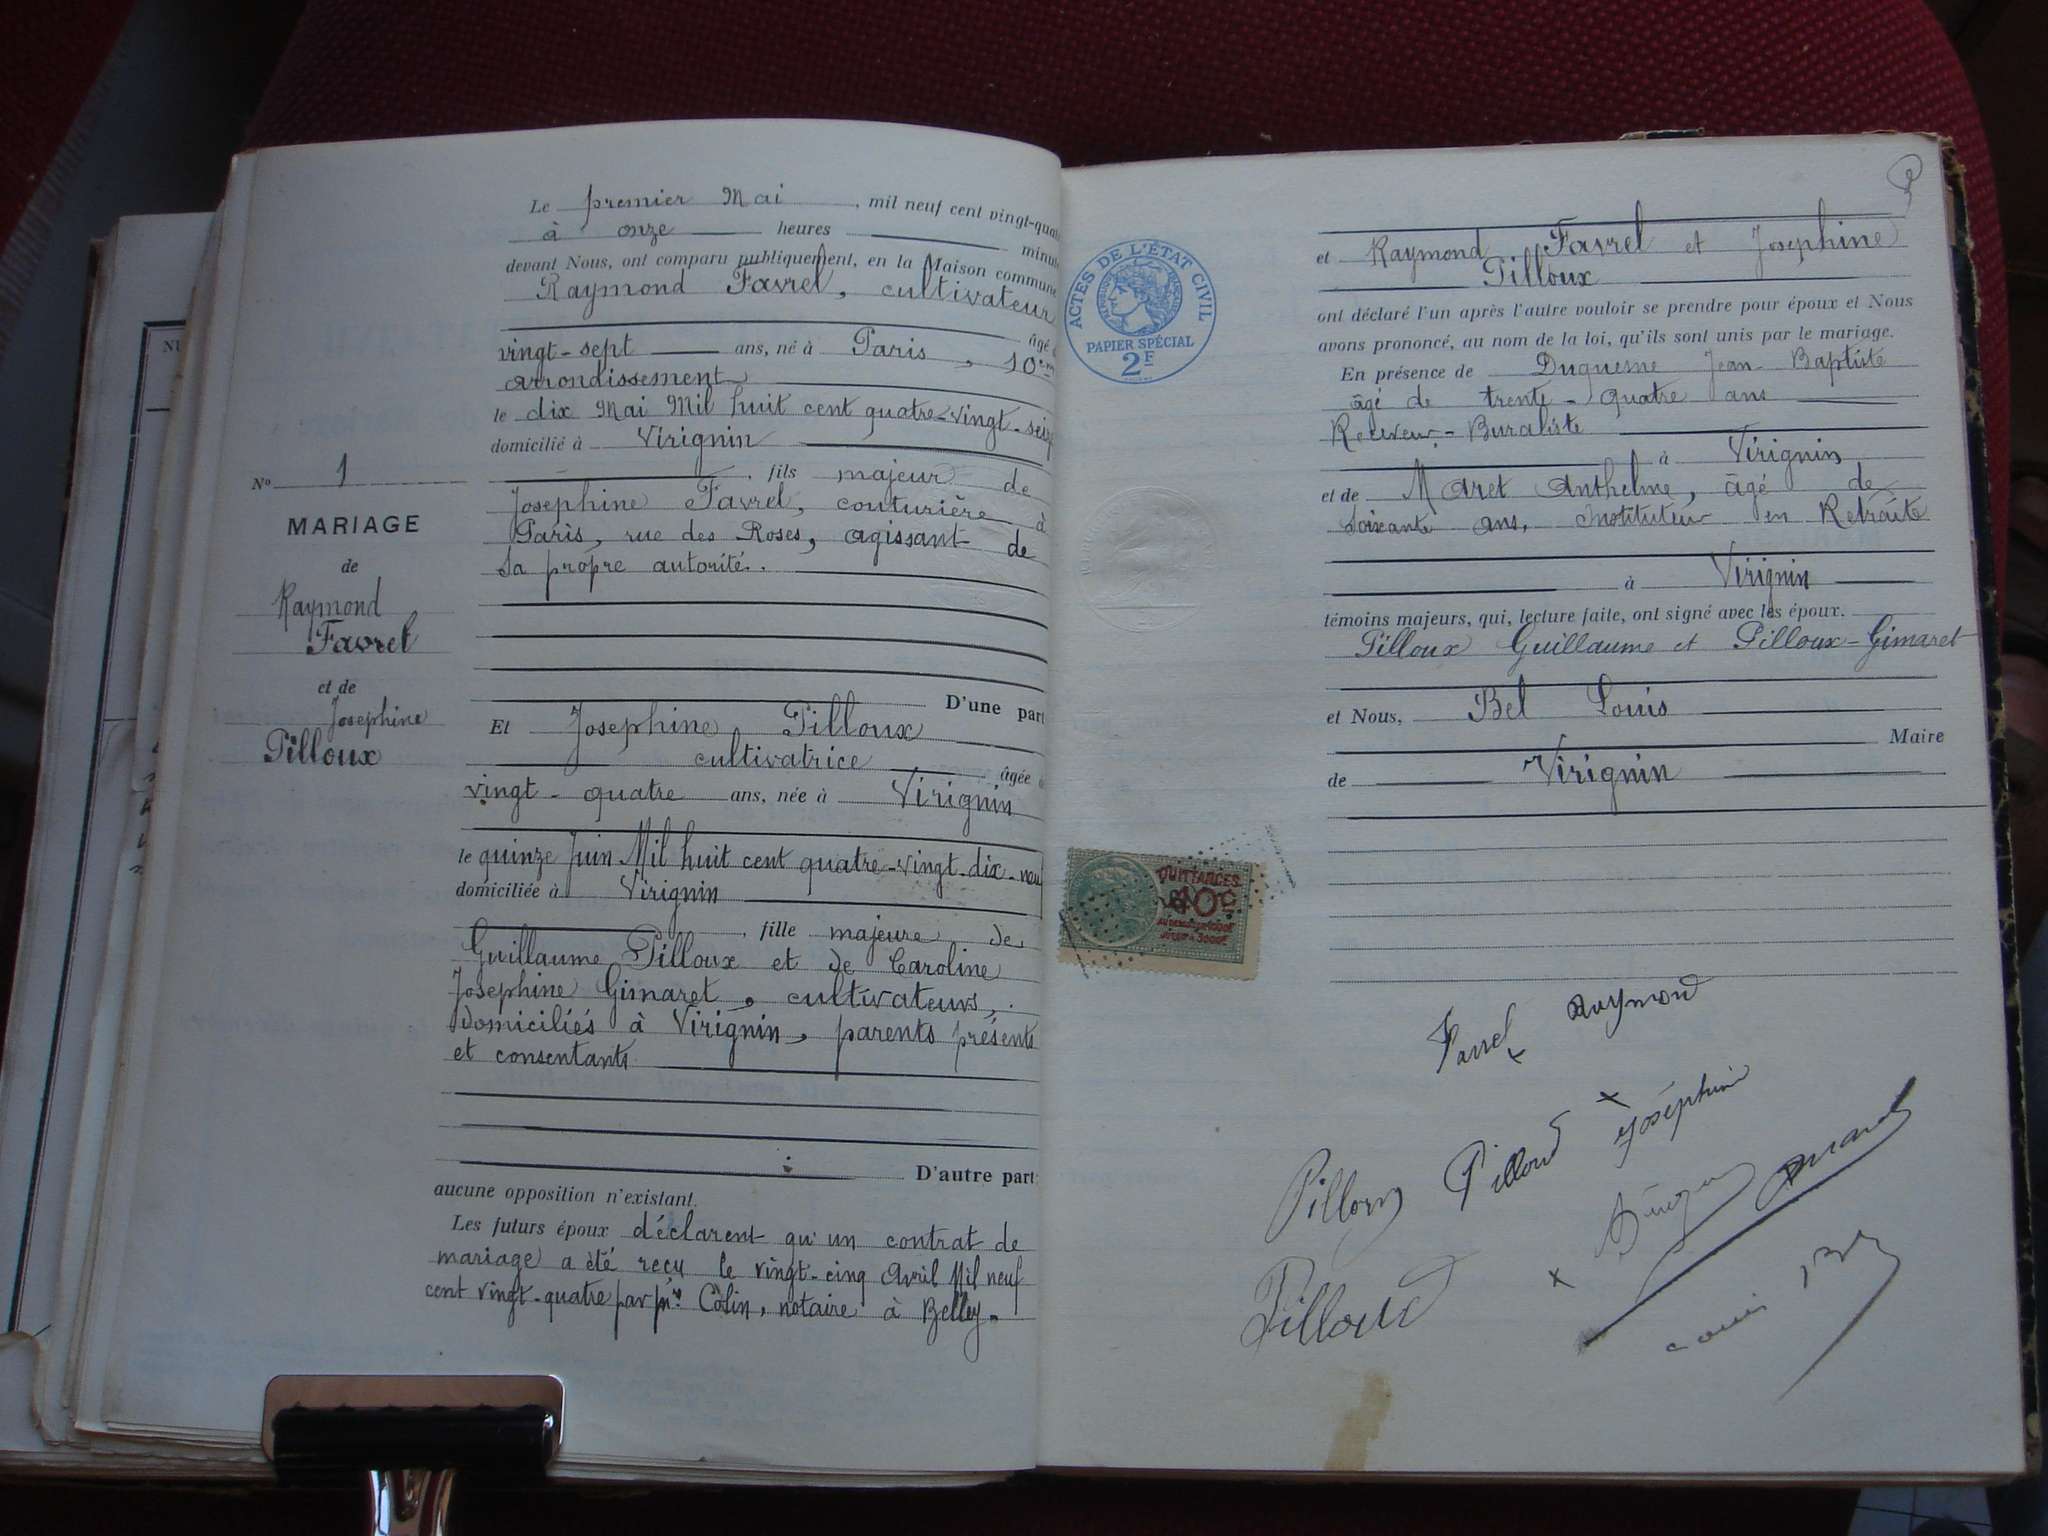 Le premier Mai, mil neuf cent vingt-quat
à onze heures minut
devant Nous, ont comparu publiquement, en la Maison commune
Raymond Favrel, cultivateur
âgé
vingt-sept ans, né à Paris, 10em
arrondissement
le dix Mai Mil huit cent quatre-vingt-seiz
domicilié à Virignin
, fils majeur de
Josephine Favrel, couturière à
Paris, rue des Roses, agissant de
sa propre autorité.
D'une part
Et Josephine Pilloux
cultivatrice âgée
vingt-quatre ans, née à Virignin
le quinze Juin Mil huit cent quatre-vingt-dix-neu
domiciliée à Virignin
, fille majeure de
Guillaume Pilloux et de Caroline
Josephine Gimaret, cultivateurs,
domiciliés à Virignin, parents présents
et consentants
D'autre part:
aucune opposition n'existant.
Les futurs époux déclarent qu'un contrat de
mariage a été reçu le vingt-cinq Avril Mil neuf
cent vingt-quatre par Colin, notaire à Belley.
No 1
MARIAGE
de
Raymond
Favrel
et de
Josephine
Pilloux
ACTES DE L'ÉTAT CIVIL
PAPIER SPÉCIAL
2F
QUITTANCES
et Raymond Favrel et Josephine
Pilloux
ont déclaré l'un après l'autre vouloir se prendre pour époux et Nous
avons prononcé, au nom de la loi, qu'ils sont unis par le mariage.
En présence de Duquesne Jean-Baptiste
âgé de trente-quatre ans
Receveur-Buraliste
à Virignin
et de Maret Anthelme, âgé de
soixante ans, instituteur en Retraite
à Virignin
témoins majeurs, qui, lecture faite, ont signé avec les époux.
Pilloux Guillaume et Pilloux-Gimaret
et Nous, Bel Louis
Maire
de Virignin
Favrel Raymond
Pilloux Joséphine
Pilloux
Louis Bel